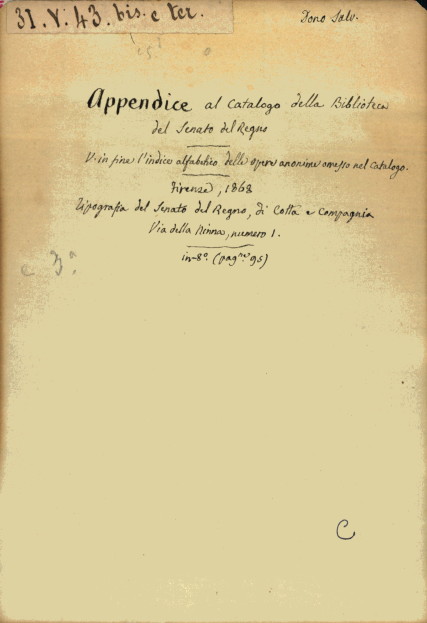 31. V. 43. bis. e ter.
Dono Salv.
Appendice al Catalogo della Biblioteca
del Senato del Regno
V. in fine l'indice alfabetico delle opere anonime omesso nel Catalogo.
Firenze, 1868
Tipografia del Senato del Regno, di Cotta e Compagnia
Via della Ninna, numero 1.
in-8º. (pagne 95)
e 3ª
C